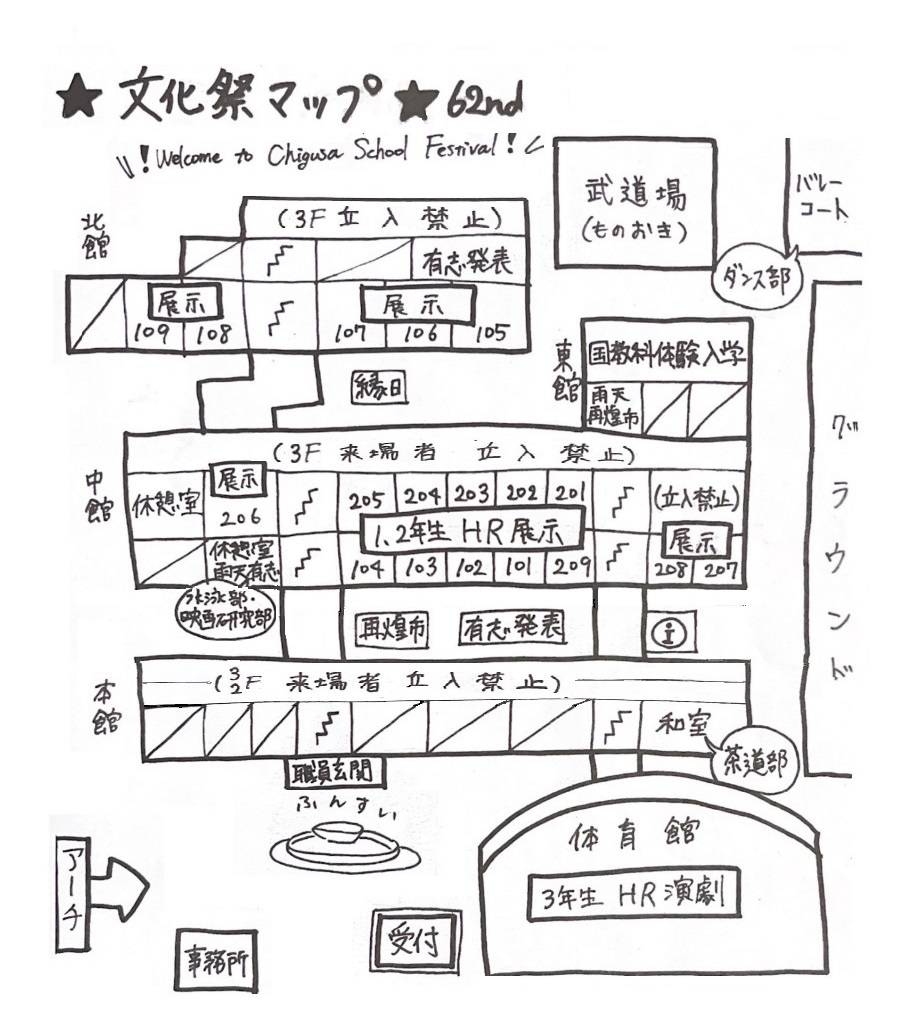 ★ 文化祭マップ ★ 62nd
! Welcome to Chigusa School Festival !
武道場
(ものおき)
バレー
コート
ダンス部
北館
(3F 立入禁止)
有志発表
展示
展示
109 108 107 106 105
縁日
東館
国教科体験入学
雨天
再煌市
グラウンド
中館
(3F 来場者 立入禁止)
休憩室
展示
206
205 204 203 202 201
(立入禁止)
1、2年生 HR 展示
展示
休憩室
雨天有志
104 103 102 101 209
208 207
水泳部・
映画研究部
再煌市
有志発表
i
本館
(3/2F 来場者 立入禁止)
和室
茶道部
職員玄関
ふんすい
体育館
3年生 HR 演劇
アーチ
受付
事務所